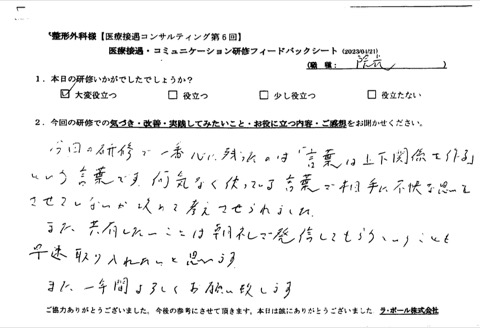 整形外科様【医療接遇コンサルティング第6回】
医療接遇・コミュニケーション研修フィードバックシート(2023/04/21)
(職 種: 院長 )
1．本日の研修いかがでしたでしょうか？
☑大変役立つ □役立つ □少し役立つ □役立たない
2．今回の研修での気づき・改善・実践してみたいこと・お役に立つ内容・ご感想をお聞かせください。
今回の研修で一番心に残ったのは「言葉は上下関係を作る」
という言葉です。何気なく使っている言葉で相手に不快な思いを
させていないか改めて考えさせられました。
また、共有したいことは朝礼で発信してもらうということも
早速取り入れたいと思います
また一年間よろしくお願い致します
ご協力ありがとうございました。今後の参考にさせて頂きます。本日は誠にありがとうございました ラ・ポール株式会社